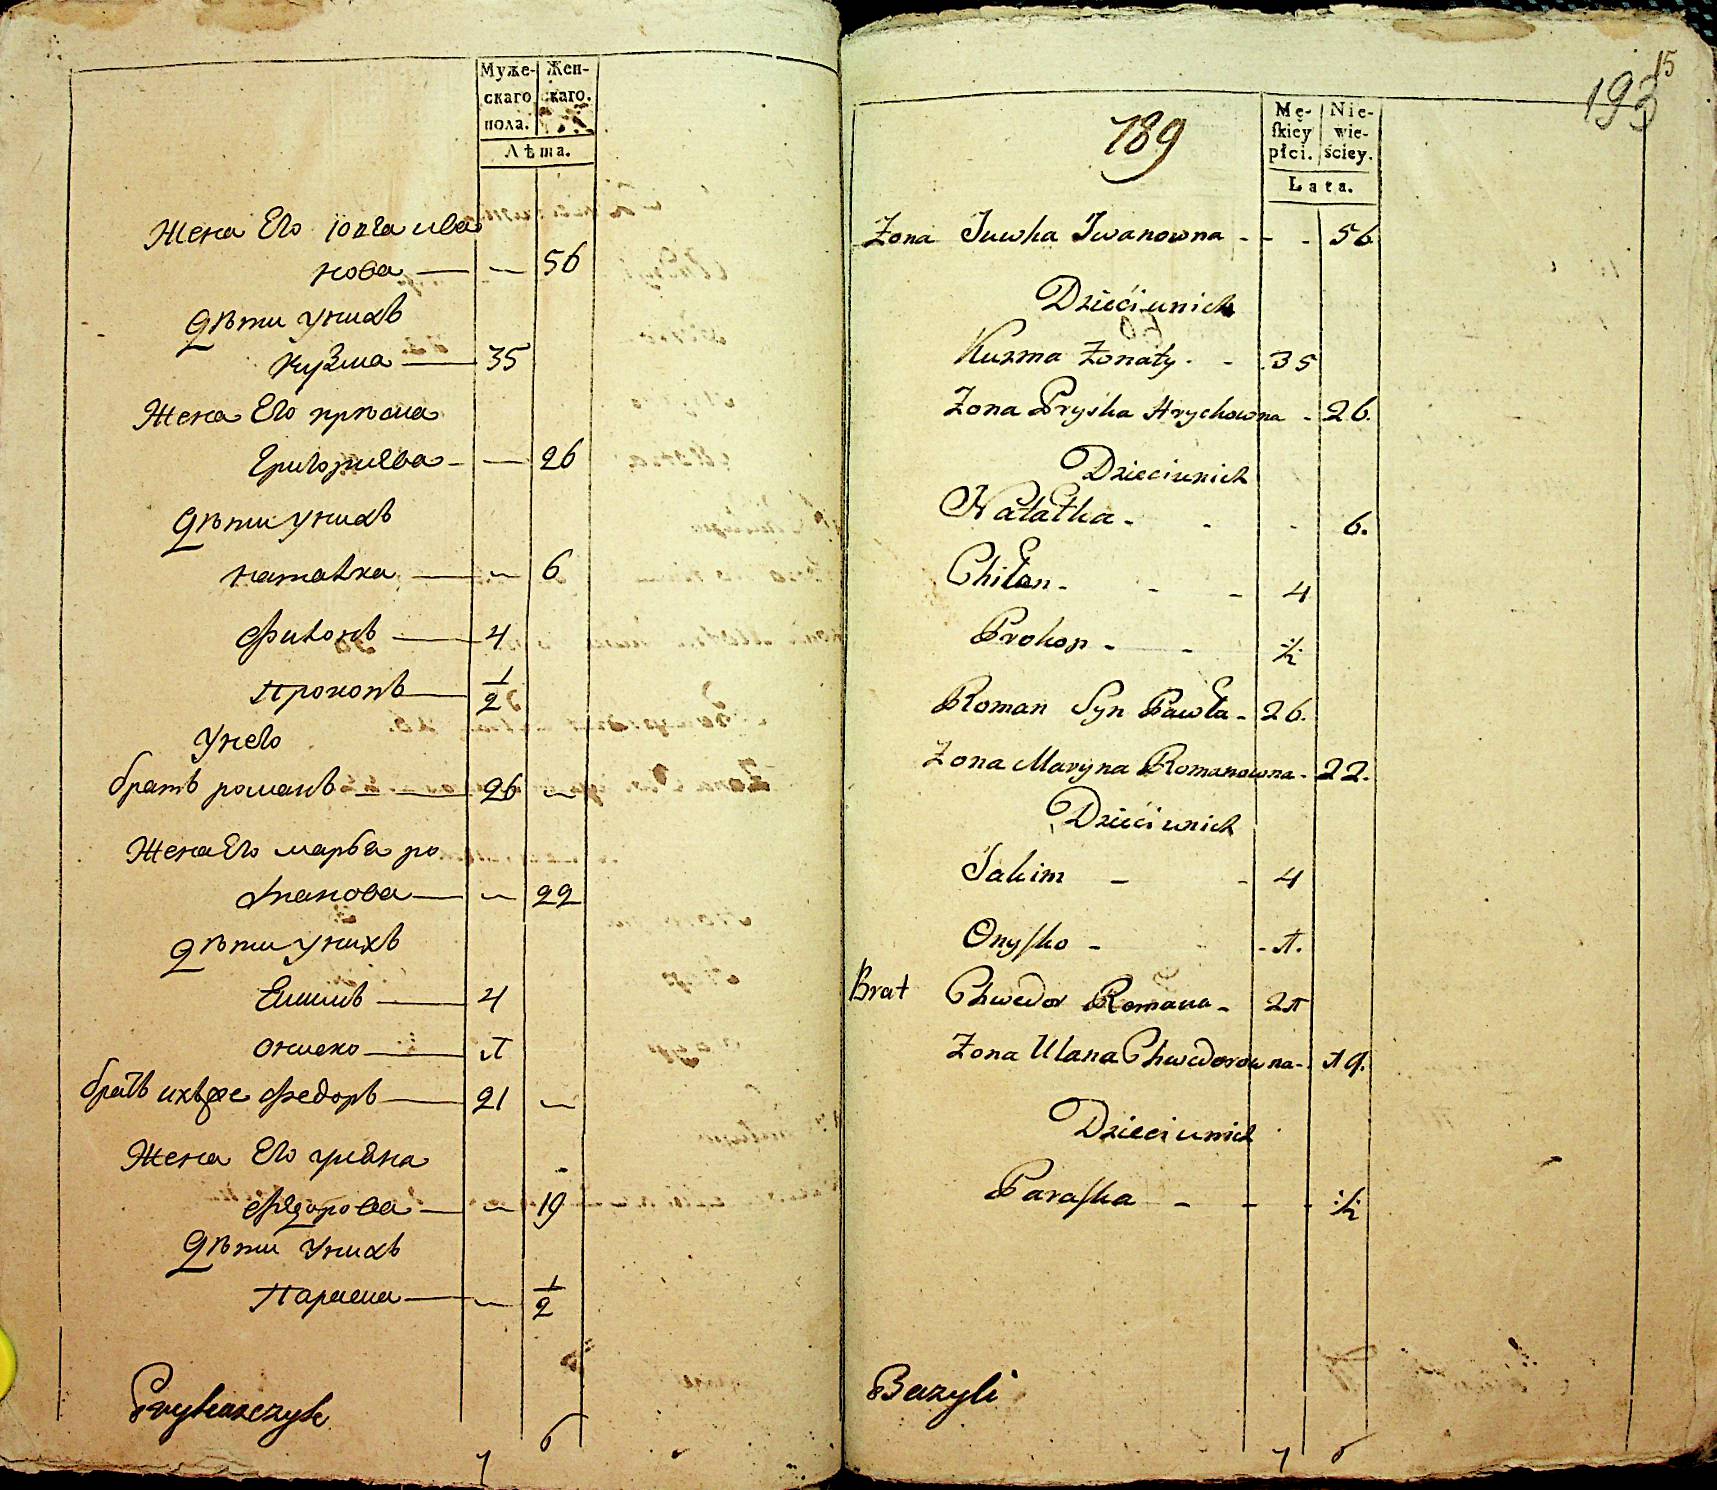 Муже-
скаго
пола.
Жен-
скаго.
Лѣта.
Жена Его юлга ива
нова — — 56
Дѣти унихъ
кузма — 35
Жена Его прѣска
Григориева — — 26
Дѣти унихъ
наталка — — 6
Филонъ — 4
Прокопъ — 1/2
унего
братъ романъ — 26 —
Жена Его марья ро
манова — — 22
Дѣти унихъ
Екимъ — 4
ониско — 1
братъ ихъже Федоръ — 21 —
Жена Его улияна
Федорова — — 19
Дѣти унихъ
Параска — — 1/2
7 6
15
193
189
Mę-
ſkiey
płci.
Nie-
wie-
ściey.
Lata.
Zona Juwka Iwanowna - - - 56
Dzieći unich
Kuzma żonaty - - 35
Zona Pryśka Hrychowna - 26.
Dzieci unich
Natałka - - - 6.
Chiłon - - - 4
Prokop - - 1/2
Roman Syn Pawła - 26.
Zona Maryna Romanowna - 22.
Dzieći unich
Jakim - - 4
Onyſko - - 1.
Brat Chwedor Romana - 21
Zona Ulana Chwedorowna - 19.
Dzieci unich
Paraſka - - - 1/2
Bazyli
7 6